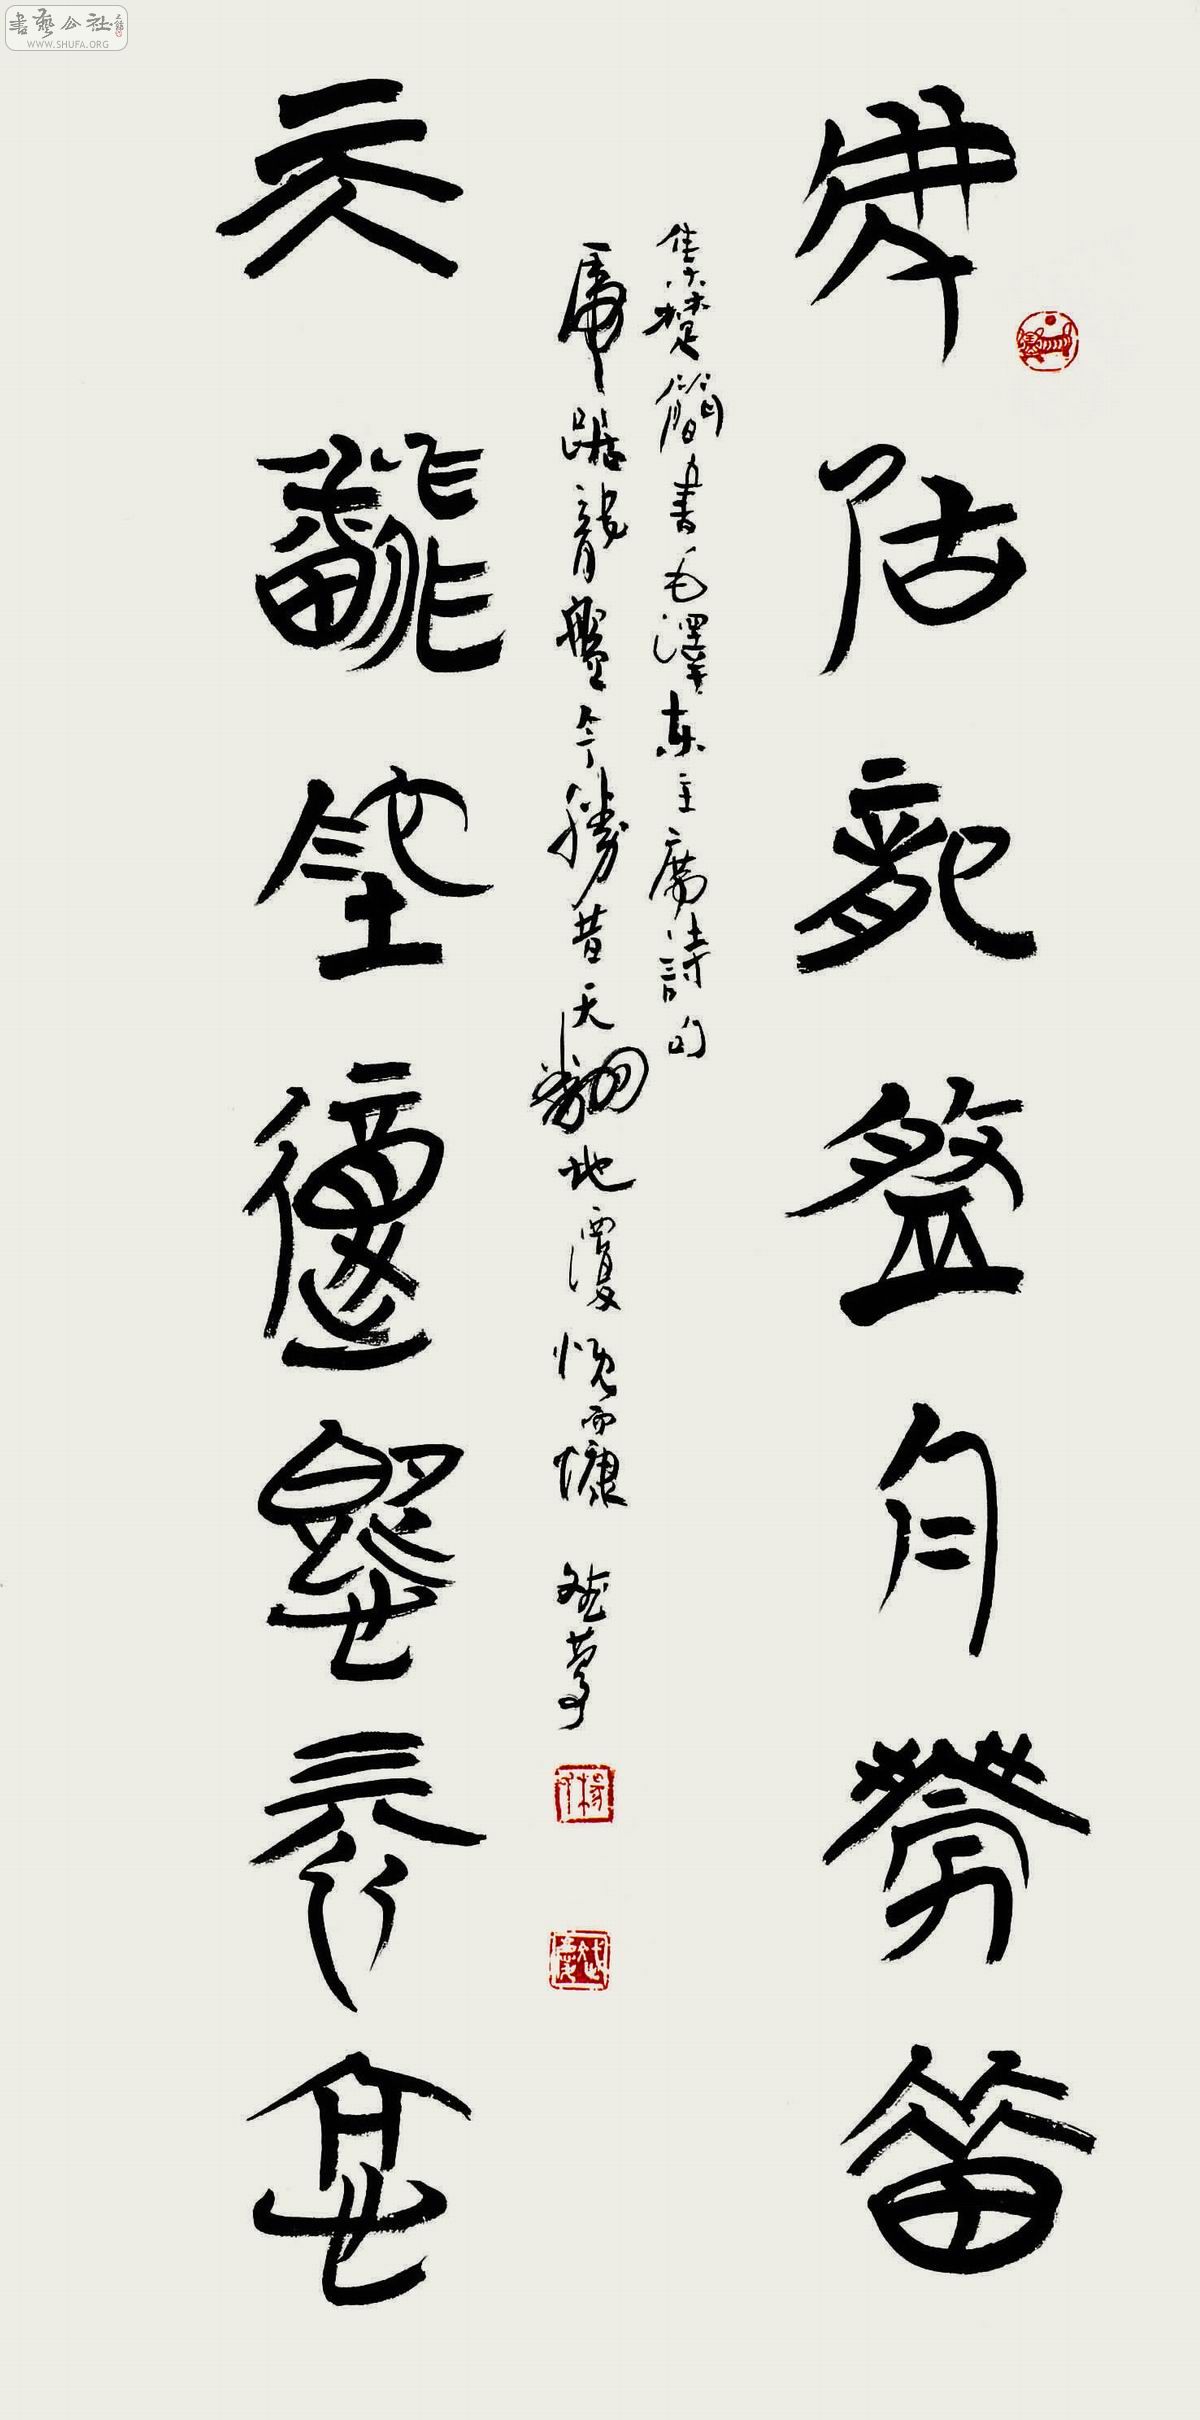 虎踞龍盤今勝昔
集楚簡書毛澤東主席詩句
虎踞龍盤今勝昔天翻地覆慨而慷
天翻地覆慨而慷
書藝公社
WWW.SHUFA.ORG